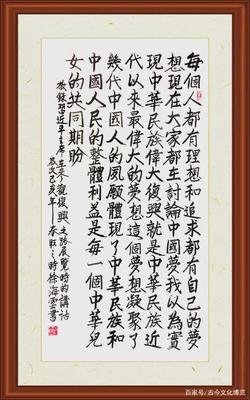 每個人都有理想和追求都有自己的夢
想現在大家都在討論中國夢我以為實
現中華民族偉大復興就是中華民族近
代以來最偉大的夢想這個夢想凝聚了
幾代中國人的夙願體現了中華民族和
中國人民的整體利益是每一個中華兒
女的共同期盼
敬錄習近平主席在參觀復興之路展覽時的講話
歲次己亥年春旺之時徐海雲書
百家号/古今文化博览